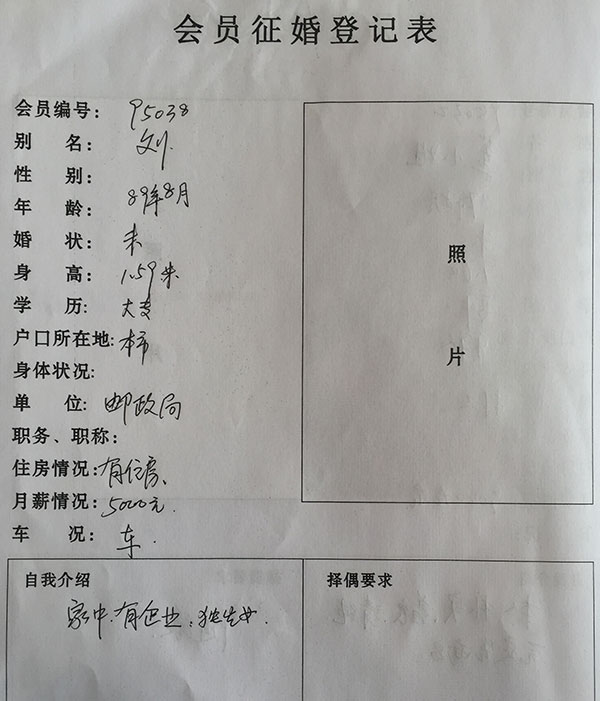 会员征婚登记表
会员编号: 95038
别 名: 刘
性 别:
年 龄: 89年8月
婚 状: 未
身 高: 1.59米
学 历: 大专
户口所在地: 本市
身体状况:
单 位: 邮政局
职务、职称:
住房情况: 有住房、
月薪情况: 5000元.
车 况: 车.
照
片
自我介绍
家中有企业,独生女.
择偶要求